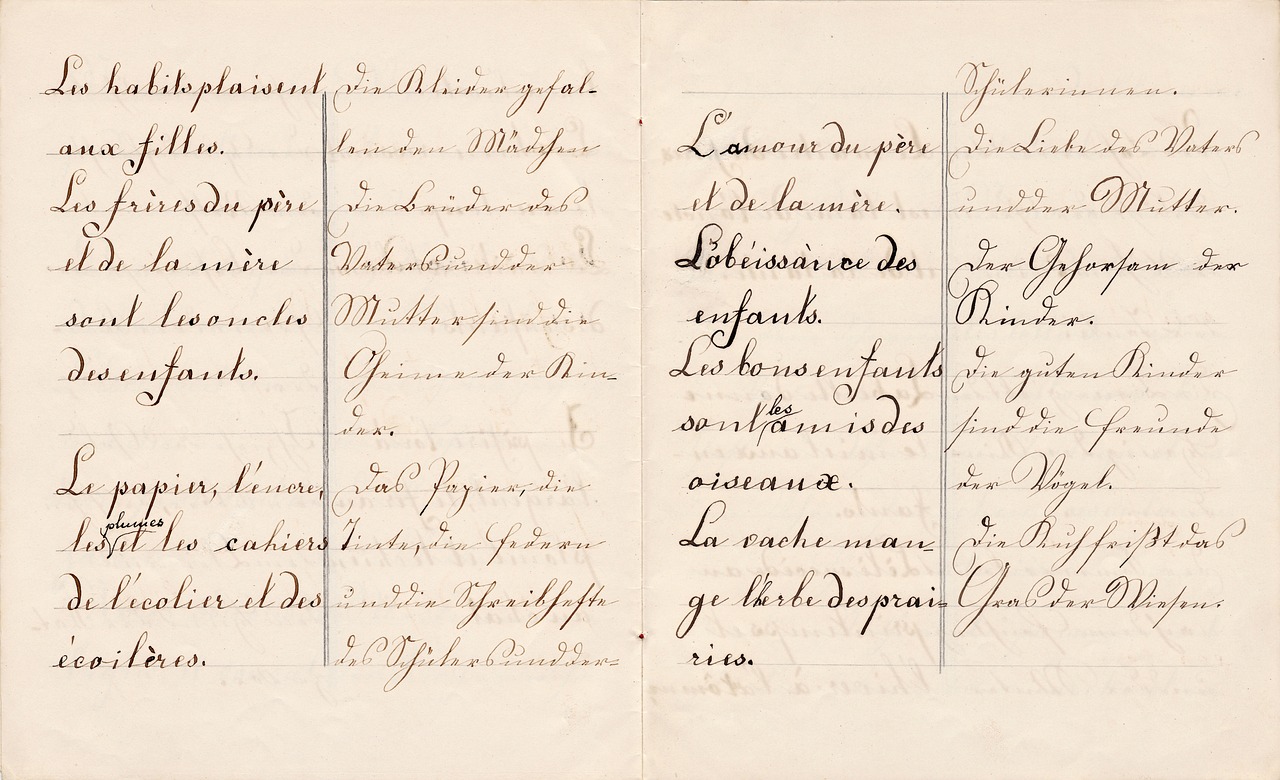 Les habits plaisent
aux filles.
Les frères du père
et de la mère
sont les oncles
des enfants.
Le papier, l'encre,
plumes
les et les cahiers
de l'écolier et des
écoilères.
Die Kleider gefal-
len den Mädchen
Die Brüder des
Vaters und der
Mutter sind die
Oheime der Kin-
der.
Das Papier, die
Tinte, die Federn
und die Schreibhefte
des Schülers und der-
L'amour du père
et de la mère.
L'obéissànce des
enfants.
Les bons enfants
les
sont amis des
oiseaux.
La vache man-
ge l'herbe des prai-
ries.
Schülerinnen.
Die Liebe des Vaters
und der Mutter.
Der Gehorsam der
Kinder.
Die guten Kinder
sind die Freunde
der Vögel.
Die Kuh frißt das
Gras der Wiesen.